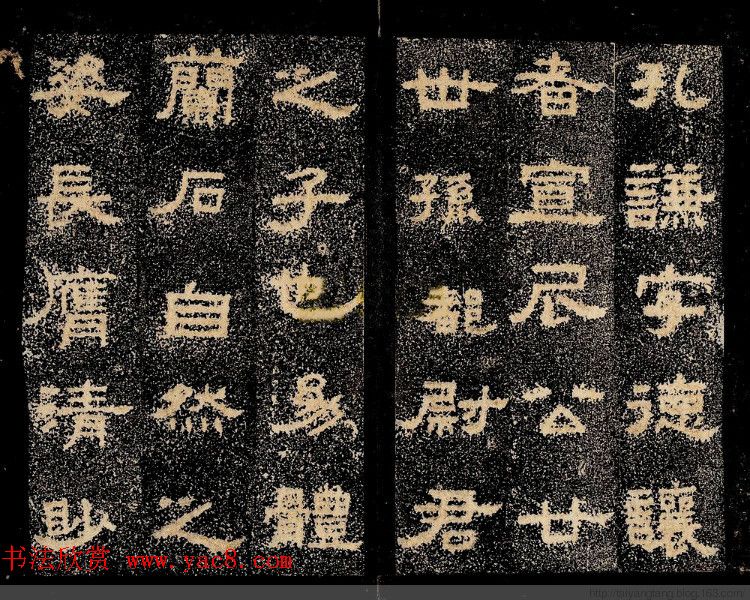 孔謙字德讓
者宣尼公廿
世孫都尉君
之子也幼體
蘭石自然之
姿長膺清妙
书法欣赏 www.yac8.com
http://taiyangtang.blog.163.com